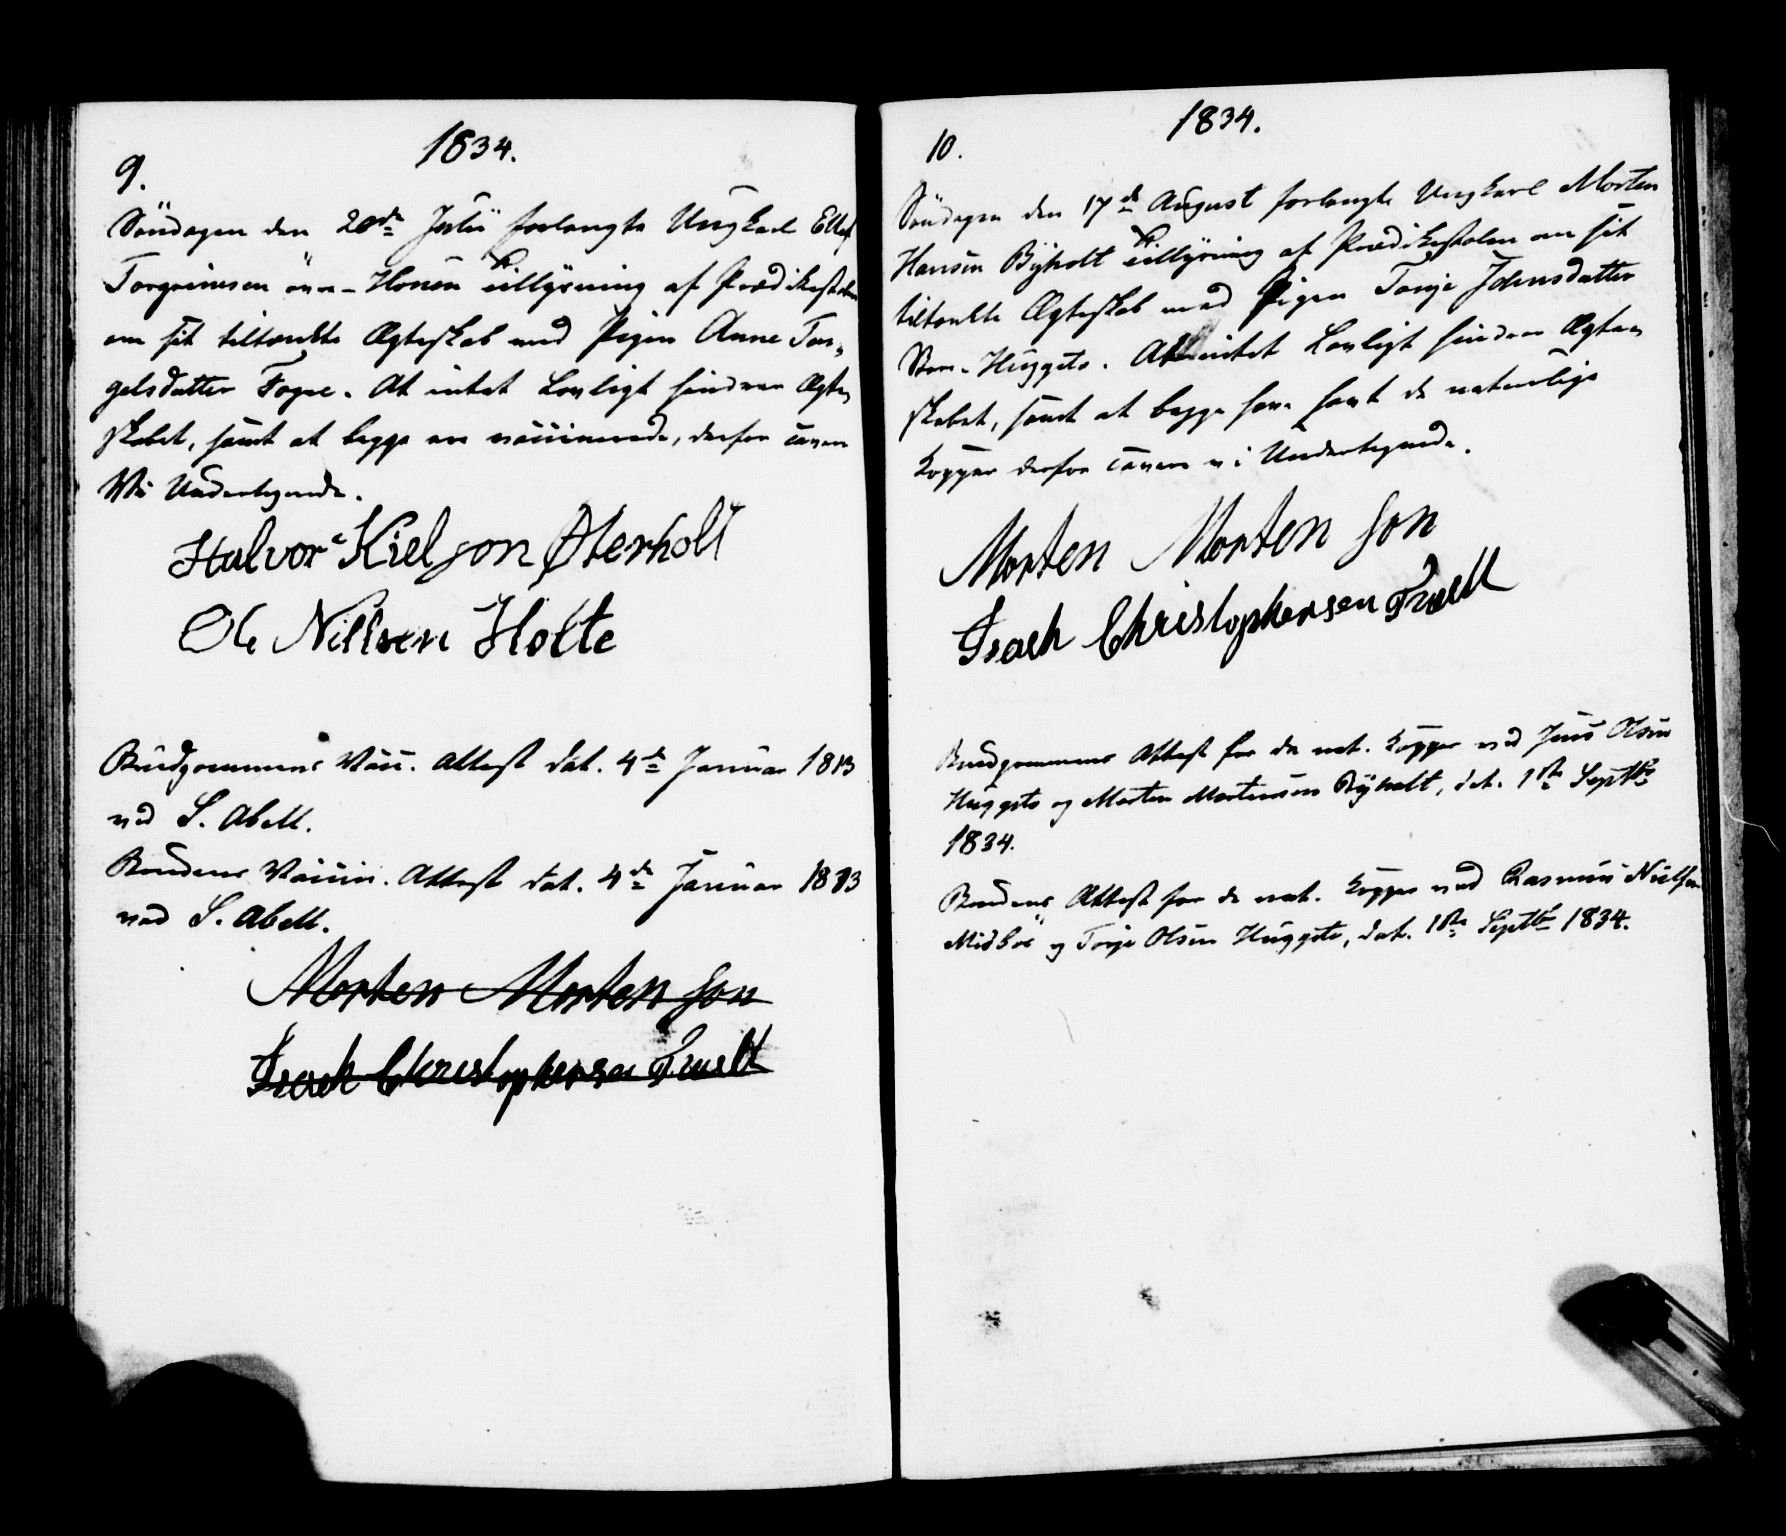 1834.
9.
Söndagen den 20de Julii forlangte Ungkarl Ellef
Torgrimsen övre-Honen Tillysning af Prædikestolen
om sit tiltænkte Ægteskab med Pigen Anne Tor-
gelsdatter Fogne. At intet Lovligt hindrer Ægte-
skabet, samt at begge ere vaccinerede, derfor cavere
Vi Undertegnede.
Halvor Kielson Østerholt
Ole Nillsen Holte
Brudgommens Vacc. Attest dat. 4de Januar 1813
ved S. Abell.
Brudens Vaccin. Attest dat. 4de Januar 1813
ved S. Abell.
Morten Morten son
Isach Christophersen Trueldt
1834.
10.
Söndagen den 17de August forlangte Ungkarl Morten
Hansen Byholt Tillysning af Prædikestolen om sit
tiltænkte Ægteskab med Pigen Tonje Johnsdatter
Huggeto. At intet Lovligt hindrer Ægte-
skabet, samt at begge have havt de naturlige
Kopper derfor cavere vi Undertegnede.
Morten Morten son
Isach Christophersen Trueldt
Brudgommens Attest for de nat. Kopper ved Jens Olsen
Huggeto og Morten Mortensen Byholt, dat. 1ste Septbr
1834.
Brudens Attest for de nat. Kopper ved Rasmus Nielsen
Midböe og Terje Olsen Huggeto, dat. 1ste Septbr 1834.